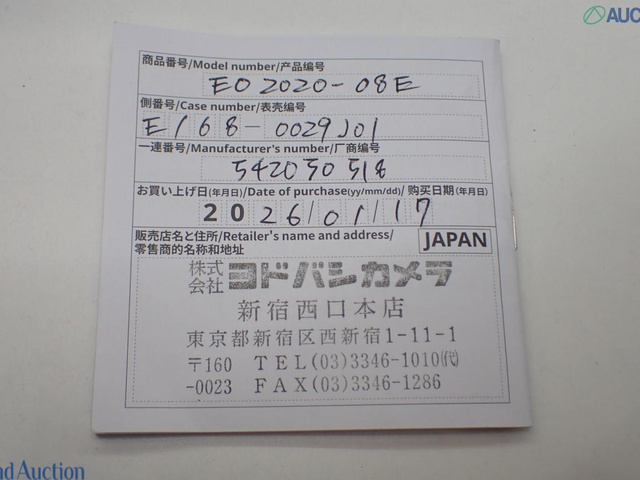 AUC
商品番号/Model number/产品编号
EO2020-08E
側番号/Case number/表壳编号
E168-0029J01
一連番号/Manufacturer's number/厂商编号
542050518
お買い上げ日(年月日)/Date of purchase(yy/mm/dd)/购买日期(年月日)
2026/01/17
販売店名と住所/Retailer's name and address/
零售商的名称和地址
JAPAN
株式会社ヨドバシカメラ
新宿西口本店
東京都新宿区西新宿1-11-1
〒160 TEL(03)3346-1010(代)
-0023 FAX(03)3346-1286
nd Auction